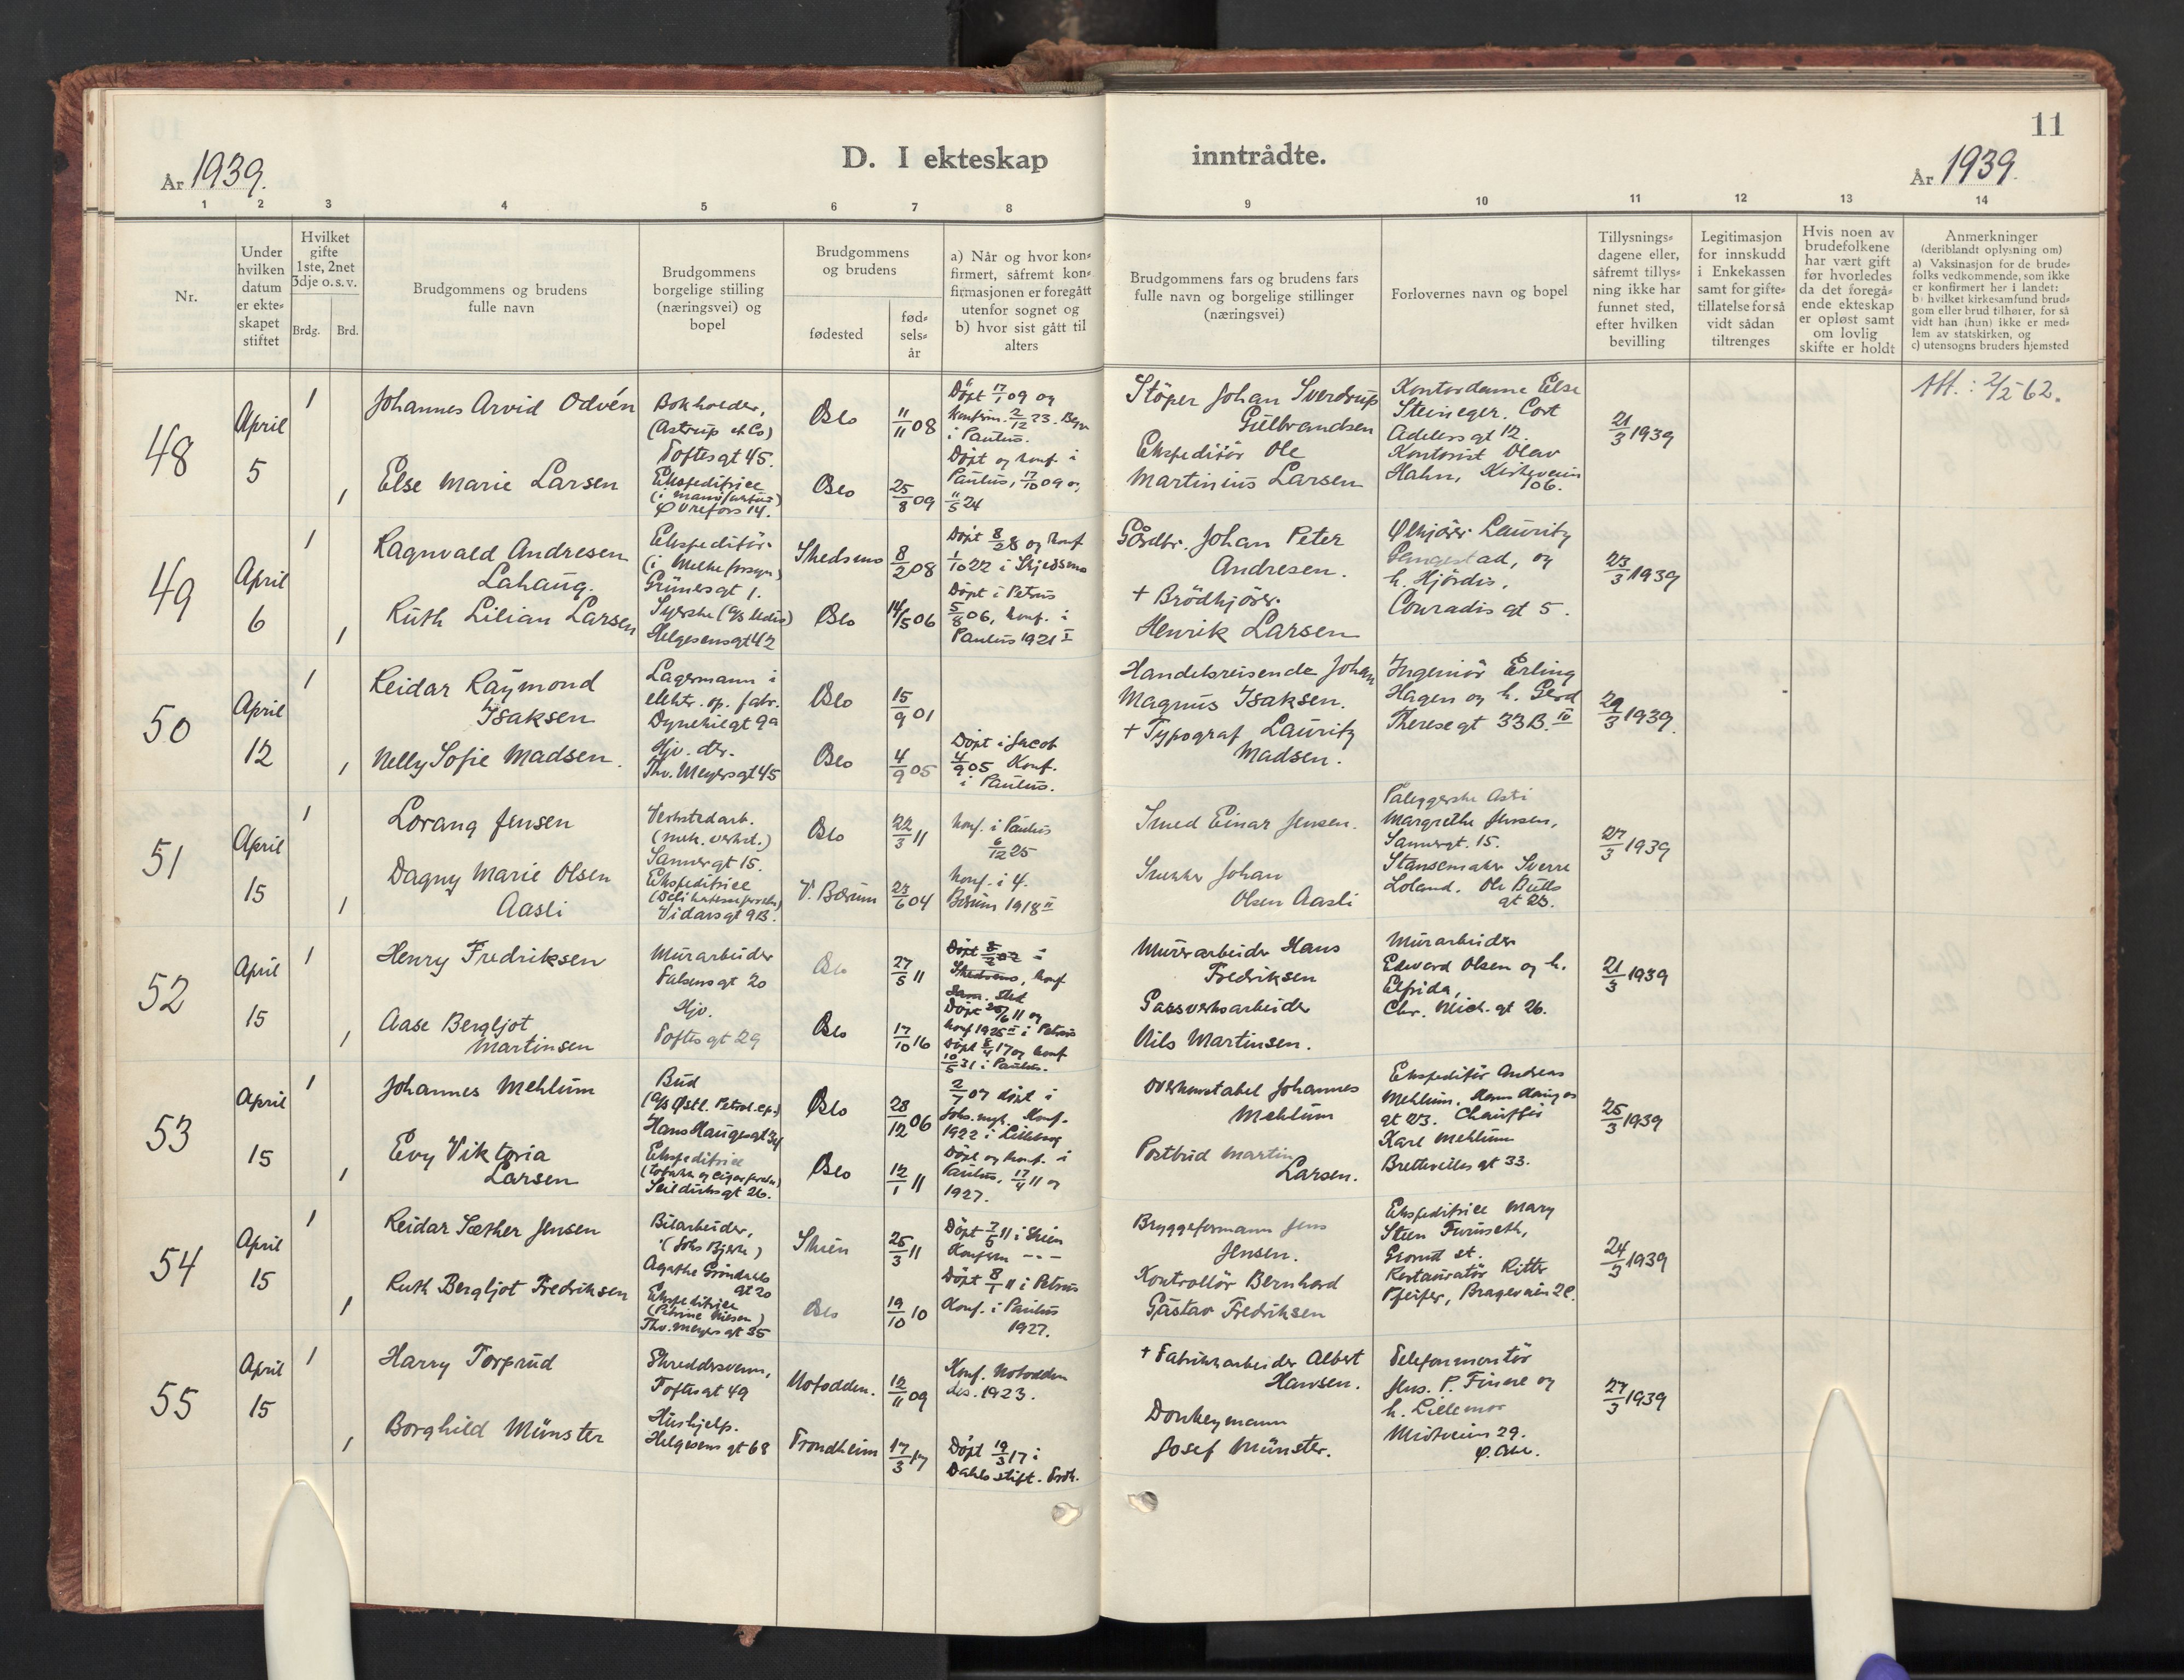 11
D. I ekteskap inntrådte.
År 1939.
År 1939.
1 2 3 4 5 6 7 8 9 10 11 12 13 14
Nr.
Under
hvilken
datum
er ekte-
skapet
stiftet
Hvilket
gifte
1ste, 2net
3dje o. s. v.
Brdg. Brd.
Brudgommens og brudens
fulle navn
Brudgommens
borgelige stilling
(næringsvei) og
bopel
Brudgommens
og brudens
fødested
fød-
sels-
år
a) Når og hvor kon-
firmert, såfremt kon-
firmasjonen er foregått
utenfor sognet og
b) hvor sist gått til
alters
Brudgommens fars og brudens fars
fulle navn og borgelige stillinger
(næringsvei)
Forlovernes navn og bopel
Tillysnings-
dagene eller,
såfremt tillys-
ning ikke har
funnet sted,
efter hvilken
bevilling
Legitimasjon
for innskudd
i Enkekassen
samt for gifte-
tillatelse for så
vidt sådan
tiltrenges
Hvis noen av
brudefolkene
har vært gift
før hvorledes
da det foregå-
ende ekteskap
er opløst samt
om lovlig
skifte er holdt
Anmerkninger
(deriblandt oplysning om)
a) Vaksinasjon for de brude-
folks vedkommende, som ikke
er konfirmert her i landet:
b) hvilket kirkesamfund brud-
gom eller brud tilhører, for så
vidt han (hun) ikke er med-
lem av statskirken, og
c) utensogns bruders hjemsted
48
April
5
1
1
Johannes Arvid Odvén
Else Marie Larsen
Bokholder,
(Astrup & Co)
Toftesgt 45.
Ekspeditrice
Øvrefoss 14.
Oslo
Oslo
11/11 08
25/8 09
Döpt 17/1 09 og
konfirm. 2/12 23.
i Paulus.
Döpt og konf. i
Paulus, 17/10 09 og
11/5 24
Stöper Johan Sverdrup
Gulbrandsen
Ekspeditör Ole
Martinius Larsen
Kontordame Else
Steineger, Cort
Adelersgt 12.
Kontorist Olav
Hahn, Kirkeveien
106.
21/3 1939
Att.: 2/5 62.
49
April
6
1
1
Ragnvald Andresen
Lahaug.
Ruth Lilian Larsen
Ekspeditör
(i Melkeforsyn.)
Grünersgt 1.
Syerske
Helgesensgt 42
Skedsmo
Oslo
8/2 08
14/5 06
Döpt 8/28 og konf
1/10 22 i Skjedsmo
Döpt i Petrus
5/8 06, konf. i
Paulus 1921 I
Gårdbr. Johan Peter
Andresen.
+ Brödkjörer
Henrik Larsen
Ölkjörer Lauritz
Langestad, og
h. Hjördis,
Conradis gt 5.
23/3 1939
50
April
12
1
1
Reidar Raymond
Isaksen
Nelly Sofie Madsen.
Lagermann i
elektr. op. fabr.
Dynekilgt 9a
Hjv. dtr.
Thv. Meyersgt 45
Oslo
Oslo
15/9 01
4/9 05
Döpt i Jacob
4/9 05 Konf.
i Paulus.
Handelsreisende Johan
Magnus Isaksen.
+ Typograf Lauritz
Madsen.
Ingeniör Erling
Hagen og h. Gerd
Theresegt 33B. IV
29/3 1939.
51
April
15
1
1
Lorang Jensen
Dagny Marie Olsen
Aasli
Verkstedarb.
(mek. verkst.)
Sannergt 15.
Ekspeditrice
Vidarsgt 9B.
Oslo
V. Bærum
22/3 11
23/6 04
konf. i Paulus
6/12 25
konf. i 4.
Bærum 1918 II
Smed Einar Jensen.
Snekker Johan
Olsen Aasli
Påleggerske Asti
Margrethe Jensen,
Sannergt. 15.
Stansemaker Sverre
Loland. Ole Bulls
gt 23.
27/3 1939
52
April
15
1
1
Henry Fredriksen
Aase Bergljot
Martinsen
Murarbeider
Falsensgt 20
Hjv.
Toftesgt 29
Oslo
Oslo
27/5 11
17/10 16
Skedsmo, konf
Döpt 25/6 11 og
konf 1925 II i Petrus
Döpt 8/4 17 og konf
10/5 31 i Paulus.
Murarbeider Hans
Fredriksen
Gassverksarbeider
Nils Martinsen.
Murarbeider
Edvard Olsen og h.
Elfrida,
Chr. Mich. gt 26.
21/3 1939
53
April
15
1
1
Johannes Mehlum
Evy Viktoria
Larsen
Bud
(A/S Östl. Petrol. cp.)
Hans Haugesgt 34
Ekspeditrice
Seilduksgt 26.
Oslo
Oslo
28/12 06
12/1 11
2/7 07 döpt i
Joh. mgh. Konf.
1922 i Lilleborg
Döpt og konf. i
Paulus, 17/4 11 og
1927.
Overkonstabel Johannes
Mehlum
Postbud Martin
Larsen.
Ekspeditör Andreas
Mehlum, Hans Hauges
gt 23. Chauffør
Karl Mehlum
Brettevilles gt 33.
25/3 1939
54
April
15
1
1
Reidar Sæther Jensen
Ruth Bergljot Fredriksen
Bilarbeider,
(Johs Bjerke)
Agathe Gröndahls
gt 20
Ekspeditrice
(Petrine Nilsen)
Thv. Meyers gt 35
Skien
Oslo
25/3 11
19/10 10
Döpt 7/5 11 i Skien
Konfirm - - -
Döpt 8/1 11 i Petrus
Konf. i Paulus
1927.
Bryggeformann Jens
Jensen.
Kontrollör Bernhard
Gustav Fredriksen
Ekspeditrice Mary
Steen Furuseth,
Grorud st.
Restauratör Ritter
Pfeifer, Brageveien 2C.
24/3 1939
55
April
15
1
1
Harry Torprud
Borghild Münster
Skreddersvenn,
Toftesgt 49
Hushjelp.
Helgesens gt 68
Notodden.
Trondheim
12/11 09
17/3 17
Konf. Notodden
des. 1923.
Döpt 19/3 17 i
Dahls stift. Trdh.
+ Fabrikkarbeider Albert
Hansen.
Donkeymann
Josef Münster.
Telefonmontör
Jens. P. Finne og
h. Lillemor
Midtveien 29.
27/3 1939